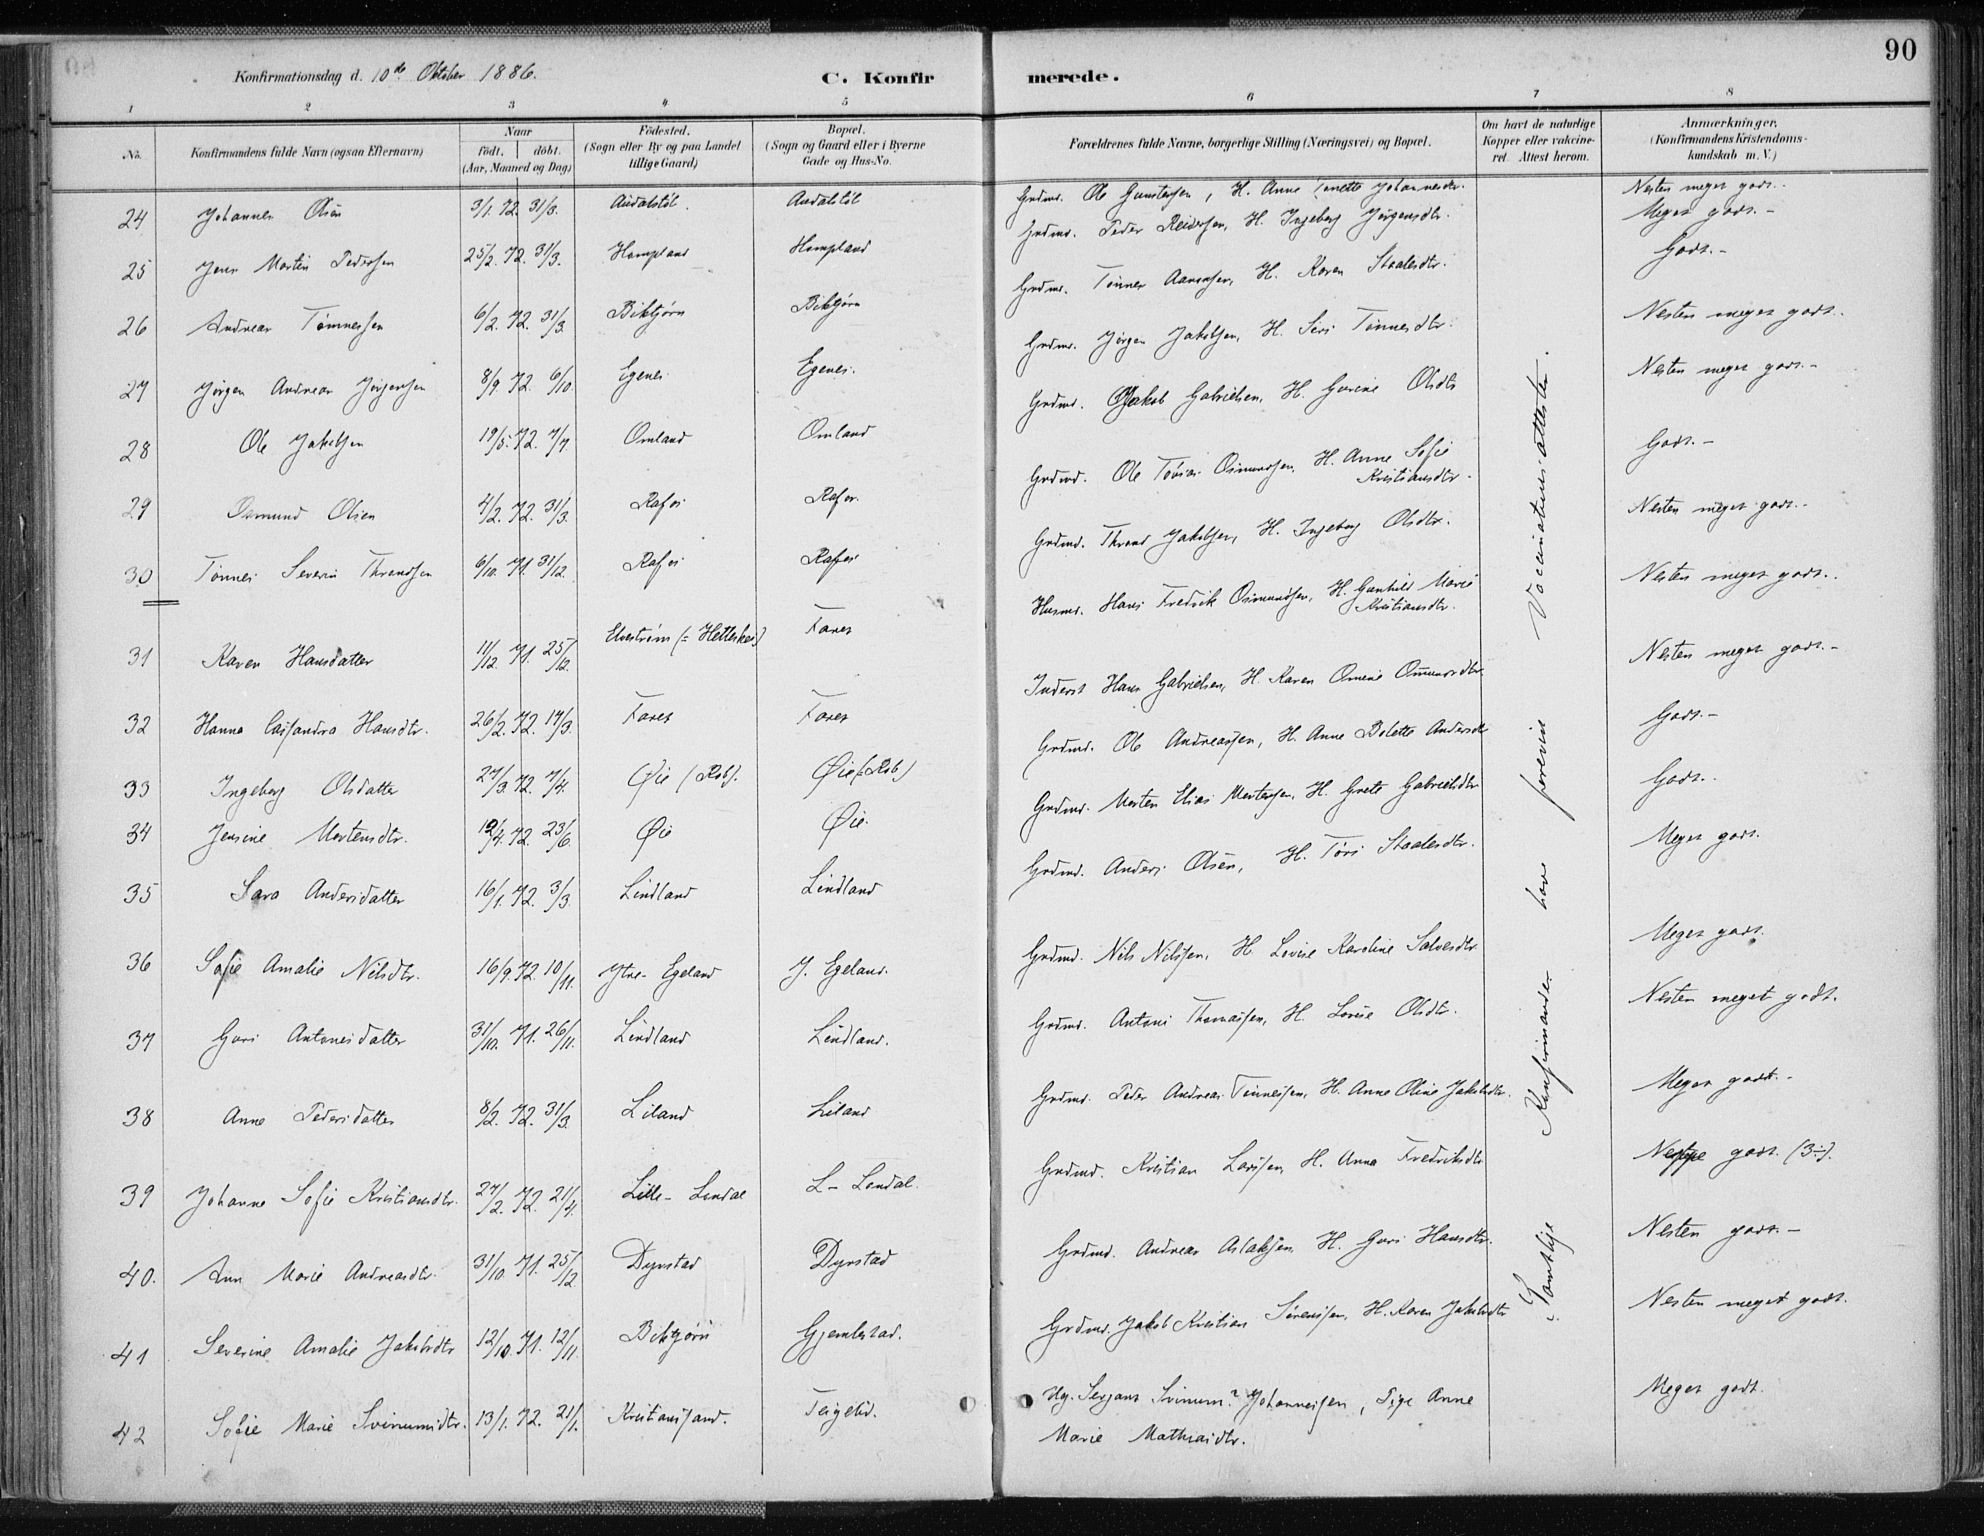 90
Konfirmationsdag d. 10de Oktober 1886.
C. Konfirmerede.
1 2 3 4 5 6 7 8
No.
Konfirmandens fulde Navn (ogsaa Efternavn)
Naar
födt. döbt.
(Aar, Maaned og Dag)
Födested.
(Sogn eller By og paa Landet
tillige Gaard)
Bopæl.
(Sogn og Gaard eller i Byerne
Gade og Hus-No.
Forældrenes fulde Navne, borgerlige Stilling (Næringsvei) og Bopæl.
Om havt de naturlige
Kopper eller vakcine-
ret. Attest herom.
Anmærkninger.
(Konfirmandens Kristendoms-
kundskab m. V.)
24 Johannes Olsen 3/1. 72. 31/3. Audalstöl. Audalstöl Grdmd. Ole Gunstensen, H. Anne Tonette Johannesdtr. Nesten meget godt.
25 Jens Martin Pedersen 25/2. 72. 31/3. Hompland Hompland Grdmd. Peder Reiersen, H. Ingeborg Jørgensdtr. Meget godt.-
26 Andreas Tønnessen 6/2. 72. 31/3. Biktjørn Biktjørn Grdmd. Tønnes Aanonsen, H. Karen Staalesdtr. Godt.-
27 Jørgen Andreas Jørgensen 8/9. 72. 6/10. Egenes Egenes. Grdmd. Jørgen Jakobsen, H. Siri Tønnesdtr. Nesten meget godt.
28 Ole Jakobsen 19/5. 72. 7/7. Omland Omland Grdmd. Jakob Gabrielsen, H. Gurine Olsdtr Nesten meget godt.-
29 Osmund Olsen 4/2. 72. 31/3. Rafos Rafos. Grdmd. Ole Tobias Osmundsen, H. Anne Sofie
Kristiansdtr. Godt.-
30 Tønnes Severin Throndsen 6/10. 71. 31/12. Rafos Rafos Grdmd. Thrond Jakobsen, H. Ingeborg Olsdtr. Nesten meget godt.-
31 Karen Hansdatter 11/12. 71. 25/12. Elvestrøm (= Hetteskei) Farez Husmd. Hans Fredrik Osmundsen, H. Gunhild Marie
Kristiansdtr. Nesten meget godt..
32 Hanna Cassandra Hansdtr. 26/2. 72. 17/3. Farez Farez Inderst Hans Gabrielsen, H. Karen Omene Osmundsdtr Nesten meget godt.-
33 Ingeborg Olsdatter 27/3. 72. 7/4. Øie (Rob). Øie (Rob) Grdmd. Ole Andreassen, H. Anne Bolette Andersdtr Godt.-
34 Jensine Mortensdtr. 19/4. 72. 23/6. Øie Øie. Grdmd. Morten Elias Mortensen, H. Grete Gabrielsdtr Godt..
35 Sara Andersdatter 16/1. 72. 3/3. Lindland Lindland Grdmd. Anders Olsen, H. Tøri Staalesdtr. Meget godt.
36 Sofie Amalie Nilsdtr. 16/9. 72. 10/11. Ytre-Egeland Y. Egeland. Grdmd. Nils Nilssen, H. Lovise Karoline Salvesdtr Meget godt.
37 Guri Antonesdatter 31/10. 71. 26/11. Lindland Lindland. Grdmd. Antoni Thomassen, H. Lovise Olsdtr. Nesten meget godt.
38 Anne Pedersdatter 8/2. 72. 31/3. Liland Liland Grdmd. Peder Andreas Tønnessen, H. Anne Oline Jakobsdtr. Meget godt.-
39 Johanne Sofie Kristiansdtr. 27/2. 72. 21/4. Lille-Lendal L-Lendal. Grdmd. Kristian Larsen, H. Anna Fredriksdtr Neppe godt. (3÷).
40. Ann Marie Andreasdtr. 31/10. 71. 25/12 Dyrstad Dyrstad Grdmd. Andreas Aslaksen, H. Guri Hansdtr. Nesten godt.-
41 Severine Amalie Jakobsdtr 12/10. 71. 12/11. Biktjørn Gjemlestad. Grdmd. Jakob Kristian Sørenssen, H. Karen Jakobsdtr Nesten meget godt.
42 Sofie Marie Svinumsdtr. 13/1. 72. 21/1. Kristiansand. Teigelid. Ug. Serjant Svinum? Johannessen, Pige Anne
Marie Mathiasdtr. Meget godt.
Samtlige Konfirmander have forevist Vaccinationsattester.